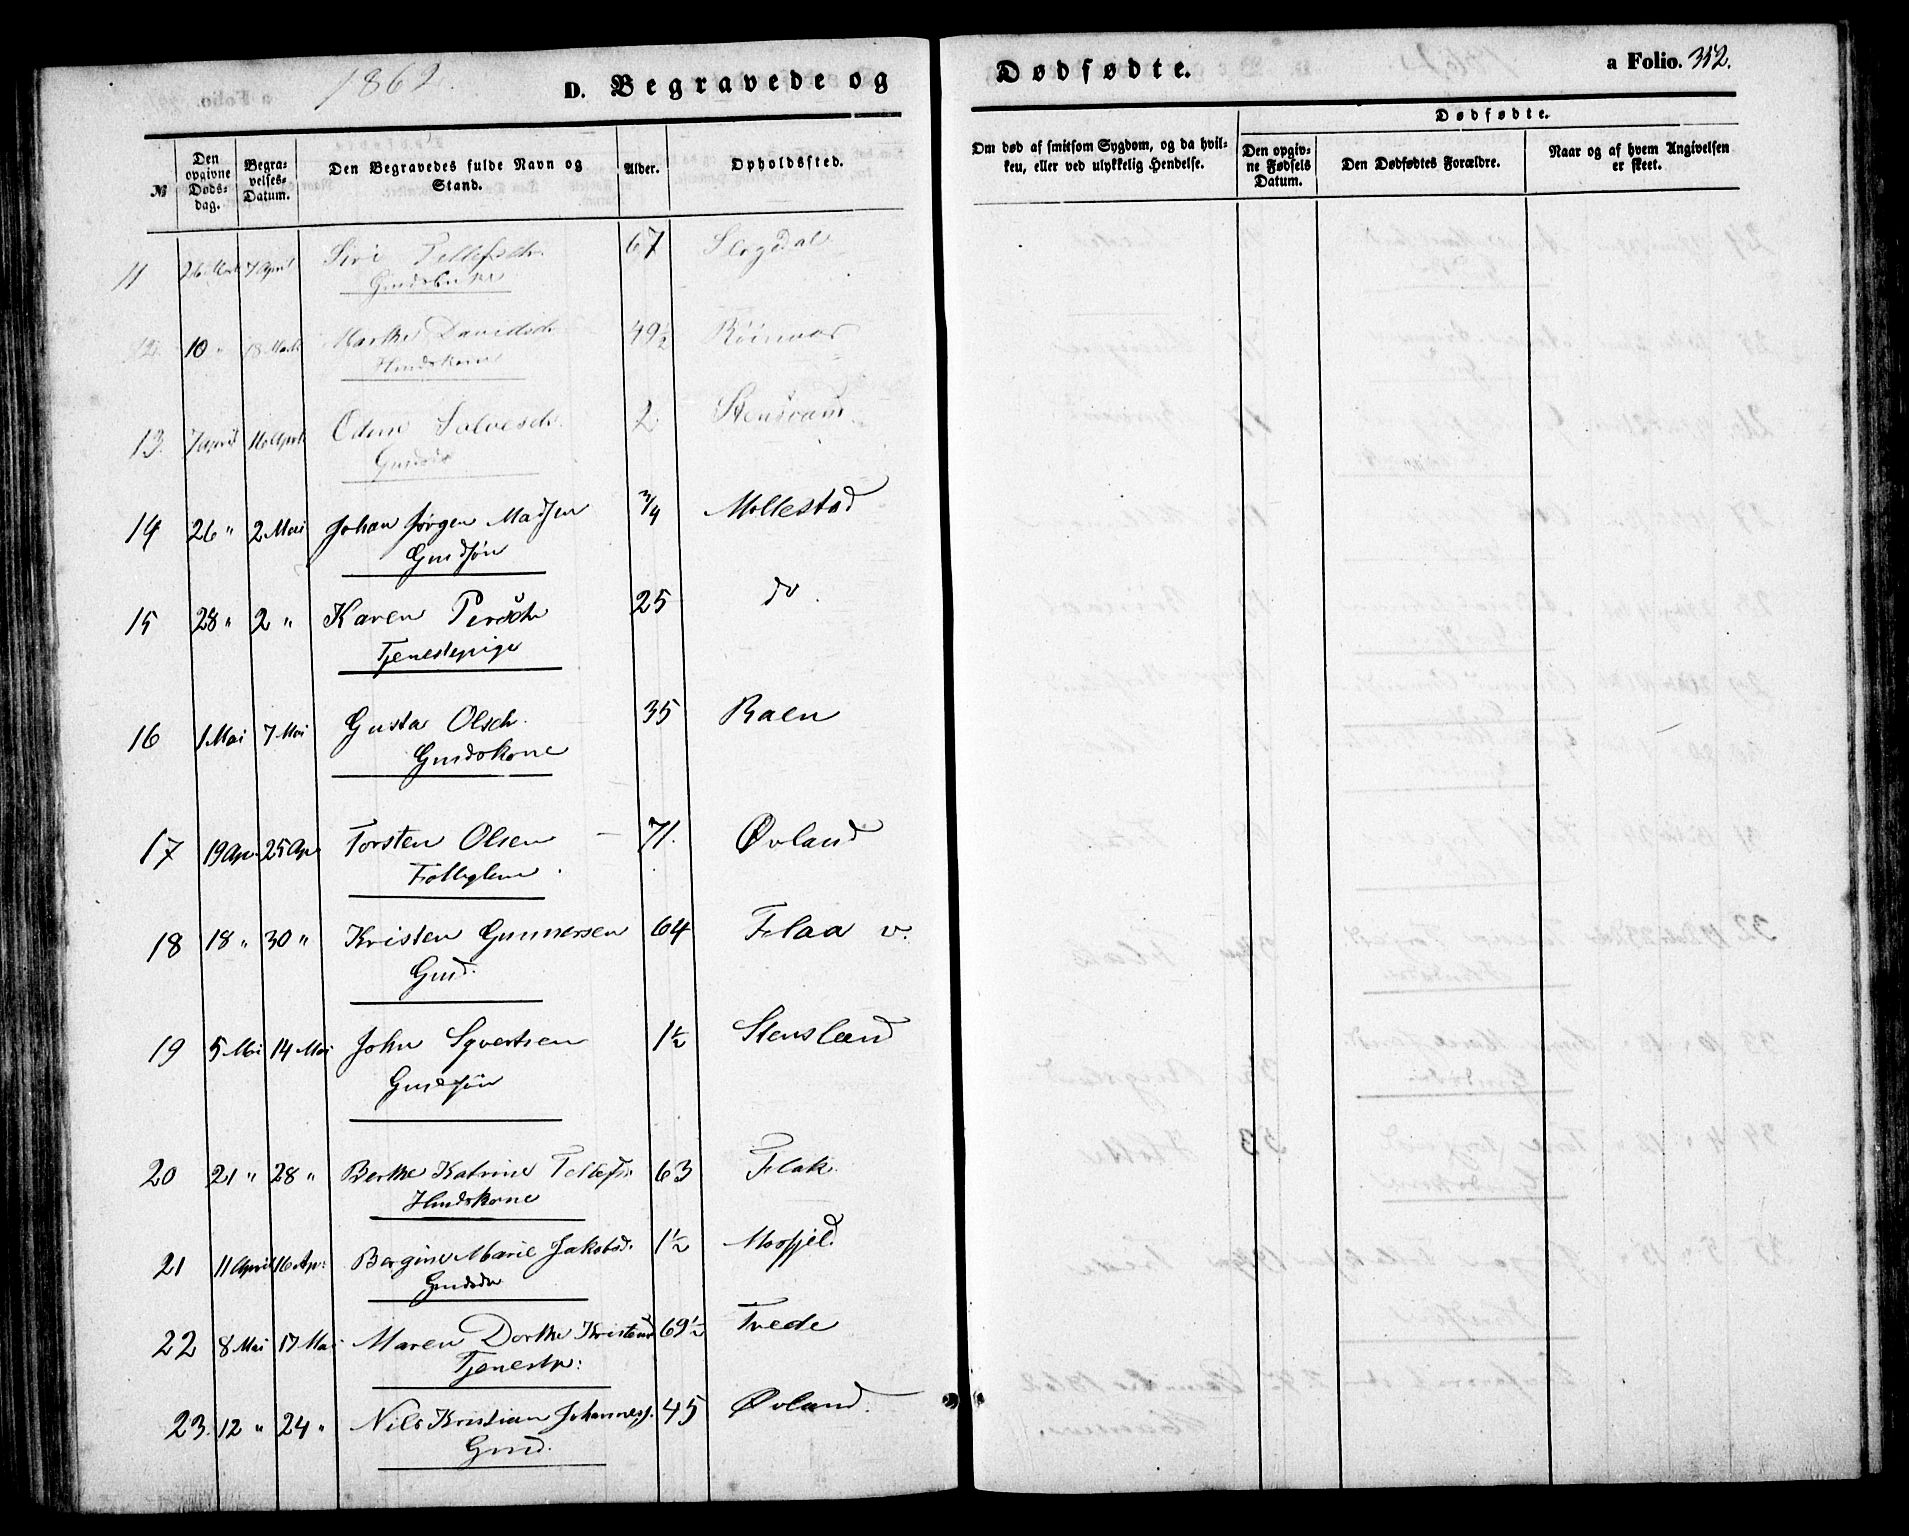 1862.
D. Begravede og
Dødfødte.
a Folio. 352.
№
Den opgivne Døds-dag.
Begra-velses-Datum.
Den Begravedes fulde Navn og Stand.
Alder.
Opholdssted.
Om død af smitsom Sygdom, og da hvil-ken, eller ved ulykkelig Hendelse.
Dødfødte.
Den opgiv-ne Fødsels Datum.
Den Dødfødtes Forældre.
Naar og af hvem Angivelsen er skeet.
11 26 Marts 7 April Siri Tellefsdr. 67
12. 10 " 18 Marts Marthe Davidsdr 49½
Huuskone
13. 7 April Salvesdr. 2
14 26 " 2 Mai Johan Jørgen Madsen ¾ Mollestad
Gmdsøn
15 28 " 2 " Karen Persdtr 25 do.
Tjenestepige
16 1 Mai 7 Mai Gusta Olsdr. 35 Raen
Gmdskone
17 19 Apr 25 Ap Torsten Olsen 71. Øvland
Fattiglem
18 18 " 30 " Kristen Gunnersen 64 Flaa v.
Gmd.
19 5 Mai 14 Mai John Syvertsen 1½ Stensland
Gmdsøn
20 21 " 28 " Berthe Katrine Tellefs: 63 Flak
Huuskone
21 11 April 16 Ap: Bergine Marie Jakobsd. 1½ Mosfjeld
Gmdsdr
22 8 Mai 17 Mai Maren Dorthe Kristensd 69½ Tvede
Tjenestp:
23. 12 " 24 " Nils Kristian Johanness. 45 Øvland.
Gmd.